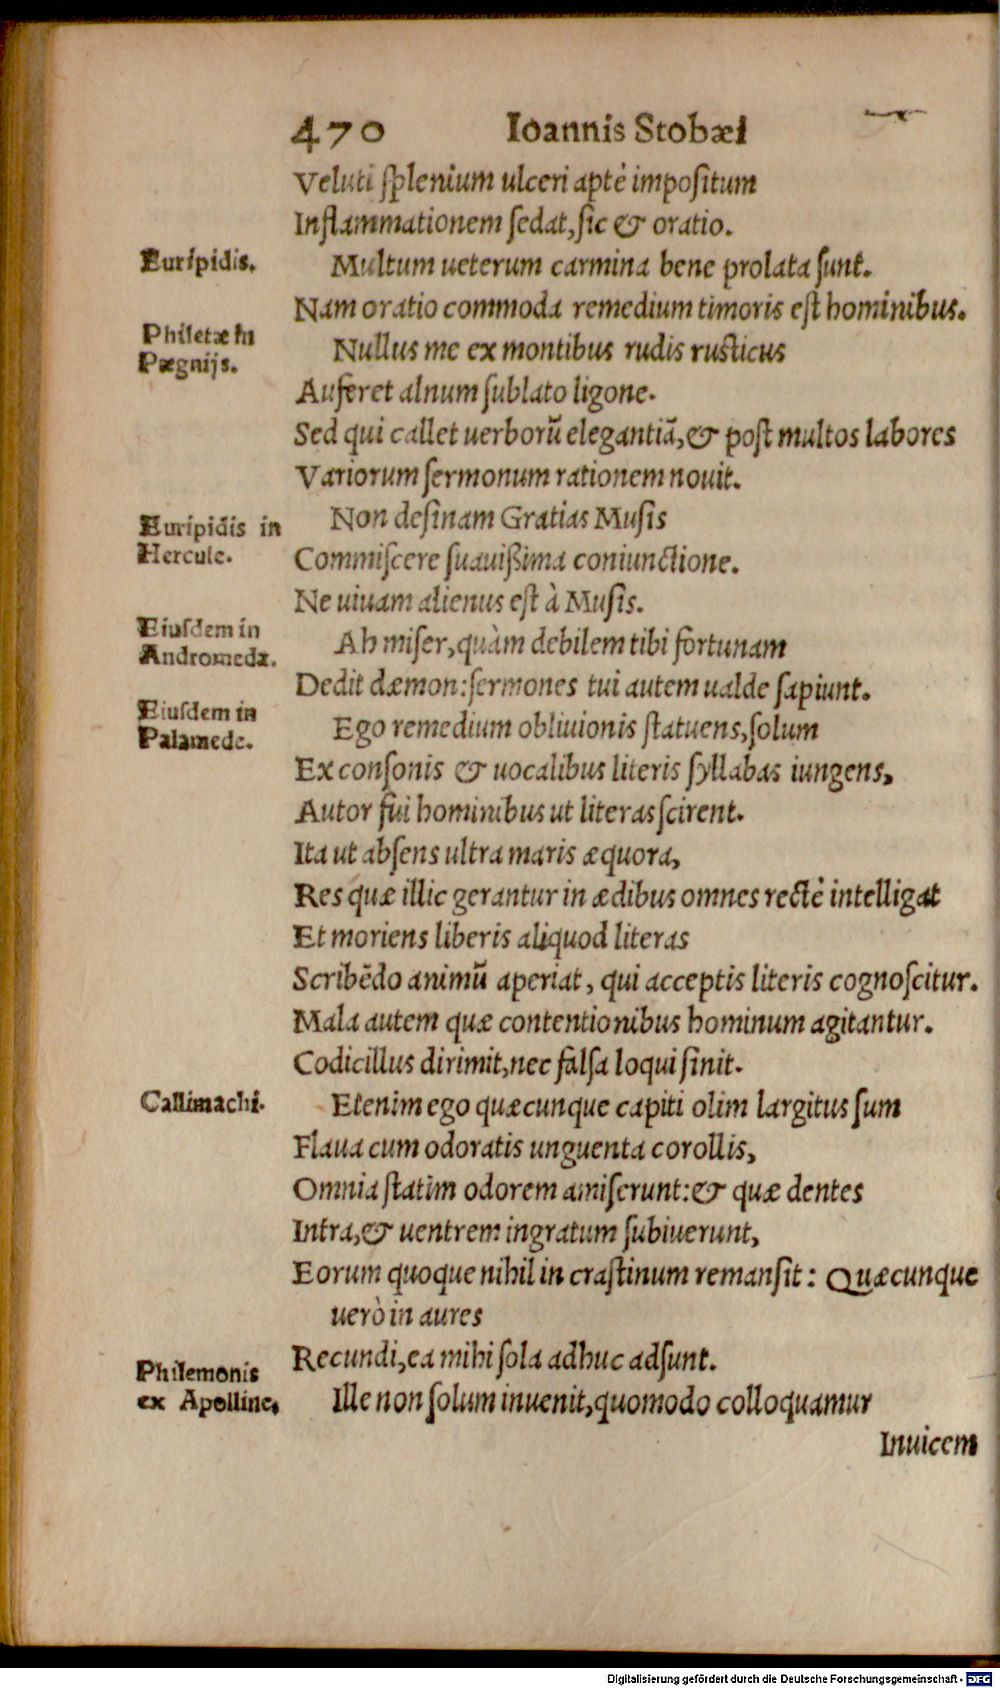 470 Ioannis Stobæi
Veluti ſplenium ulceri aptè impoſitum
Inflammationem ſedat, ſic & oratio.
Euripidis.
Multum ueterum carmina bene prolata ſunt.
Nam oratio commoda remedium timoris eſt hominibus.
Philetæ in
Pægnijs.
Nullus me ex montibus rudis ruſticus
Auferet alnum ſublato ligone.
Sed qui callet uerborũ elegantiã, & poſt multos labores
Variorum ſermonum rationem nouit.
Euripidis in
Hercule.
Non deſinam Gratias Muſis
Commiſcere ſuauißima coniunctione.
Ne uiuam alienus eſt à Muſis.
Eiuſdem in
Andromeda.
Ah miſer, quàm debilem tibi fortunam
Dedit dæmon: ſermones tui autem ualde ſapiunt.
Eiuſdem in
Palamede.
Ego remedium obliuionis ſtatuens, ſolum
Ex conſonis & uocalibus literis ſyllabas iungens,
Autor fui hominibus ut literas ſcirent.
Ita ut abſens ultra maris æquora,
Res quæ illic gerantur in ædibus omnes rectè intelligat
Et moriens liberis aliquod literas
Scribẽdo animũ aperiat, qui acceptis literis cognoſcitur.
Mala autem quæ contentionibus hominum agitantur.
Codicillus dirimit, nec falſa loqui ſinit.
Callimachi.
Etenim ego quæcunque capiti olim largitus ſum
Flaua cum odoratis unguenta corollis,
Omnia ſtatim odorem amiſerunt: & quæ dentes
Intra, & uentrem ingratum ſubiuerunt,
Eorum quoque nihil in craſtinum remanſit: Quæcunque
uerò in aures
Recundi, ea mihi ſola adhuc adſunt.
Philemonis
ex Apolline.
Ille non ſolum inuenit, quomodo colloquamur
Inuicem
Digitalisierung gefördert durch die Deutsche Forschungsgemeinschaft - DFG